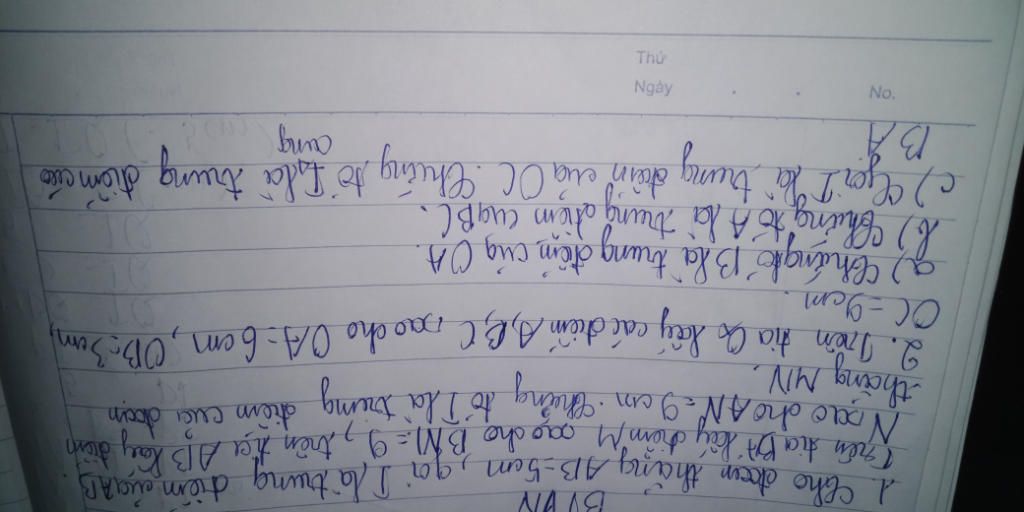 BVVN
1. Cho đoạn thẳng AB=5cm, gọi I là trung điểm của AB
Trên tia BA lấy điểm M sao cho BM=9, trên tia AB lấy điểm
N sao cho AN=9cm. Chứng tỏ I là trung điểm của đoạn
thẳng MN.
2. Trên tia Ox lấy các điểm A,B,C sao cho OA=6cm, OB=3cm,
OC=9cm.
a) Chứng tỏ B là trung điểm của OA.
b) Chứng tỏ A là trung điểm của BC.
c) Gọi I là trung điểm của OC. Chứng tỏ I cũng là trung điểm của
BA
Thứ
Ngày
No.